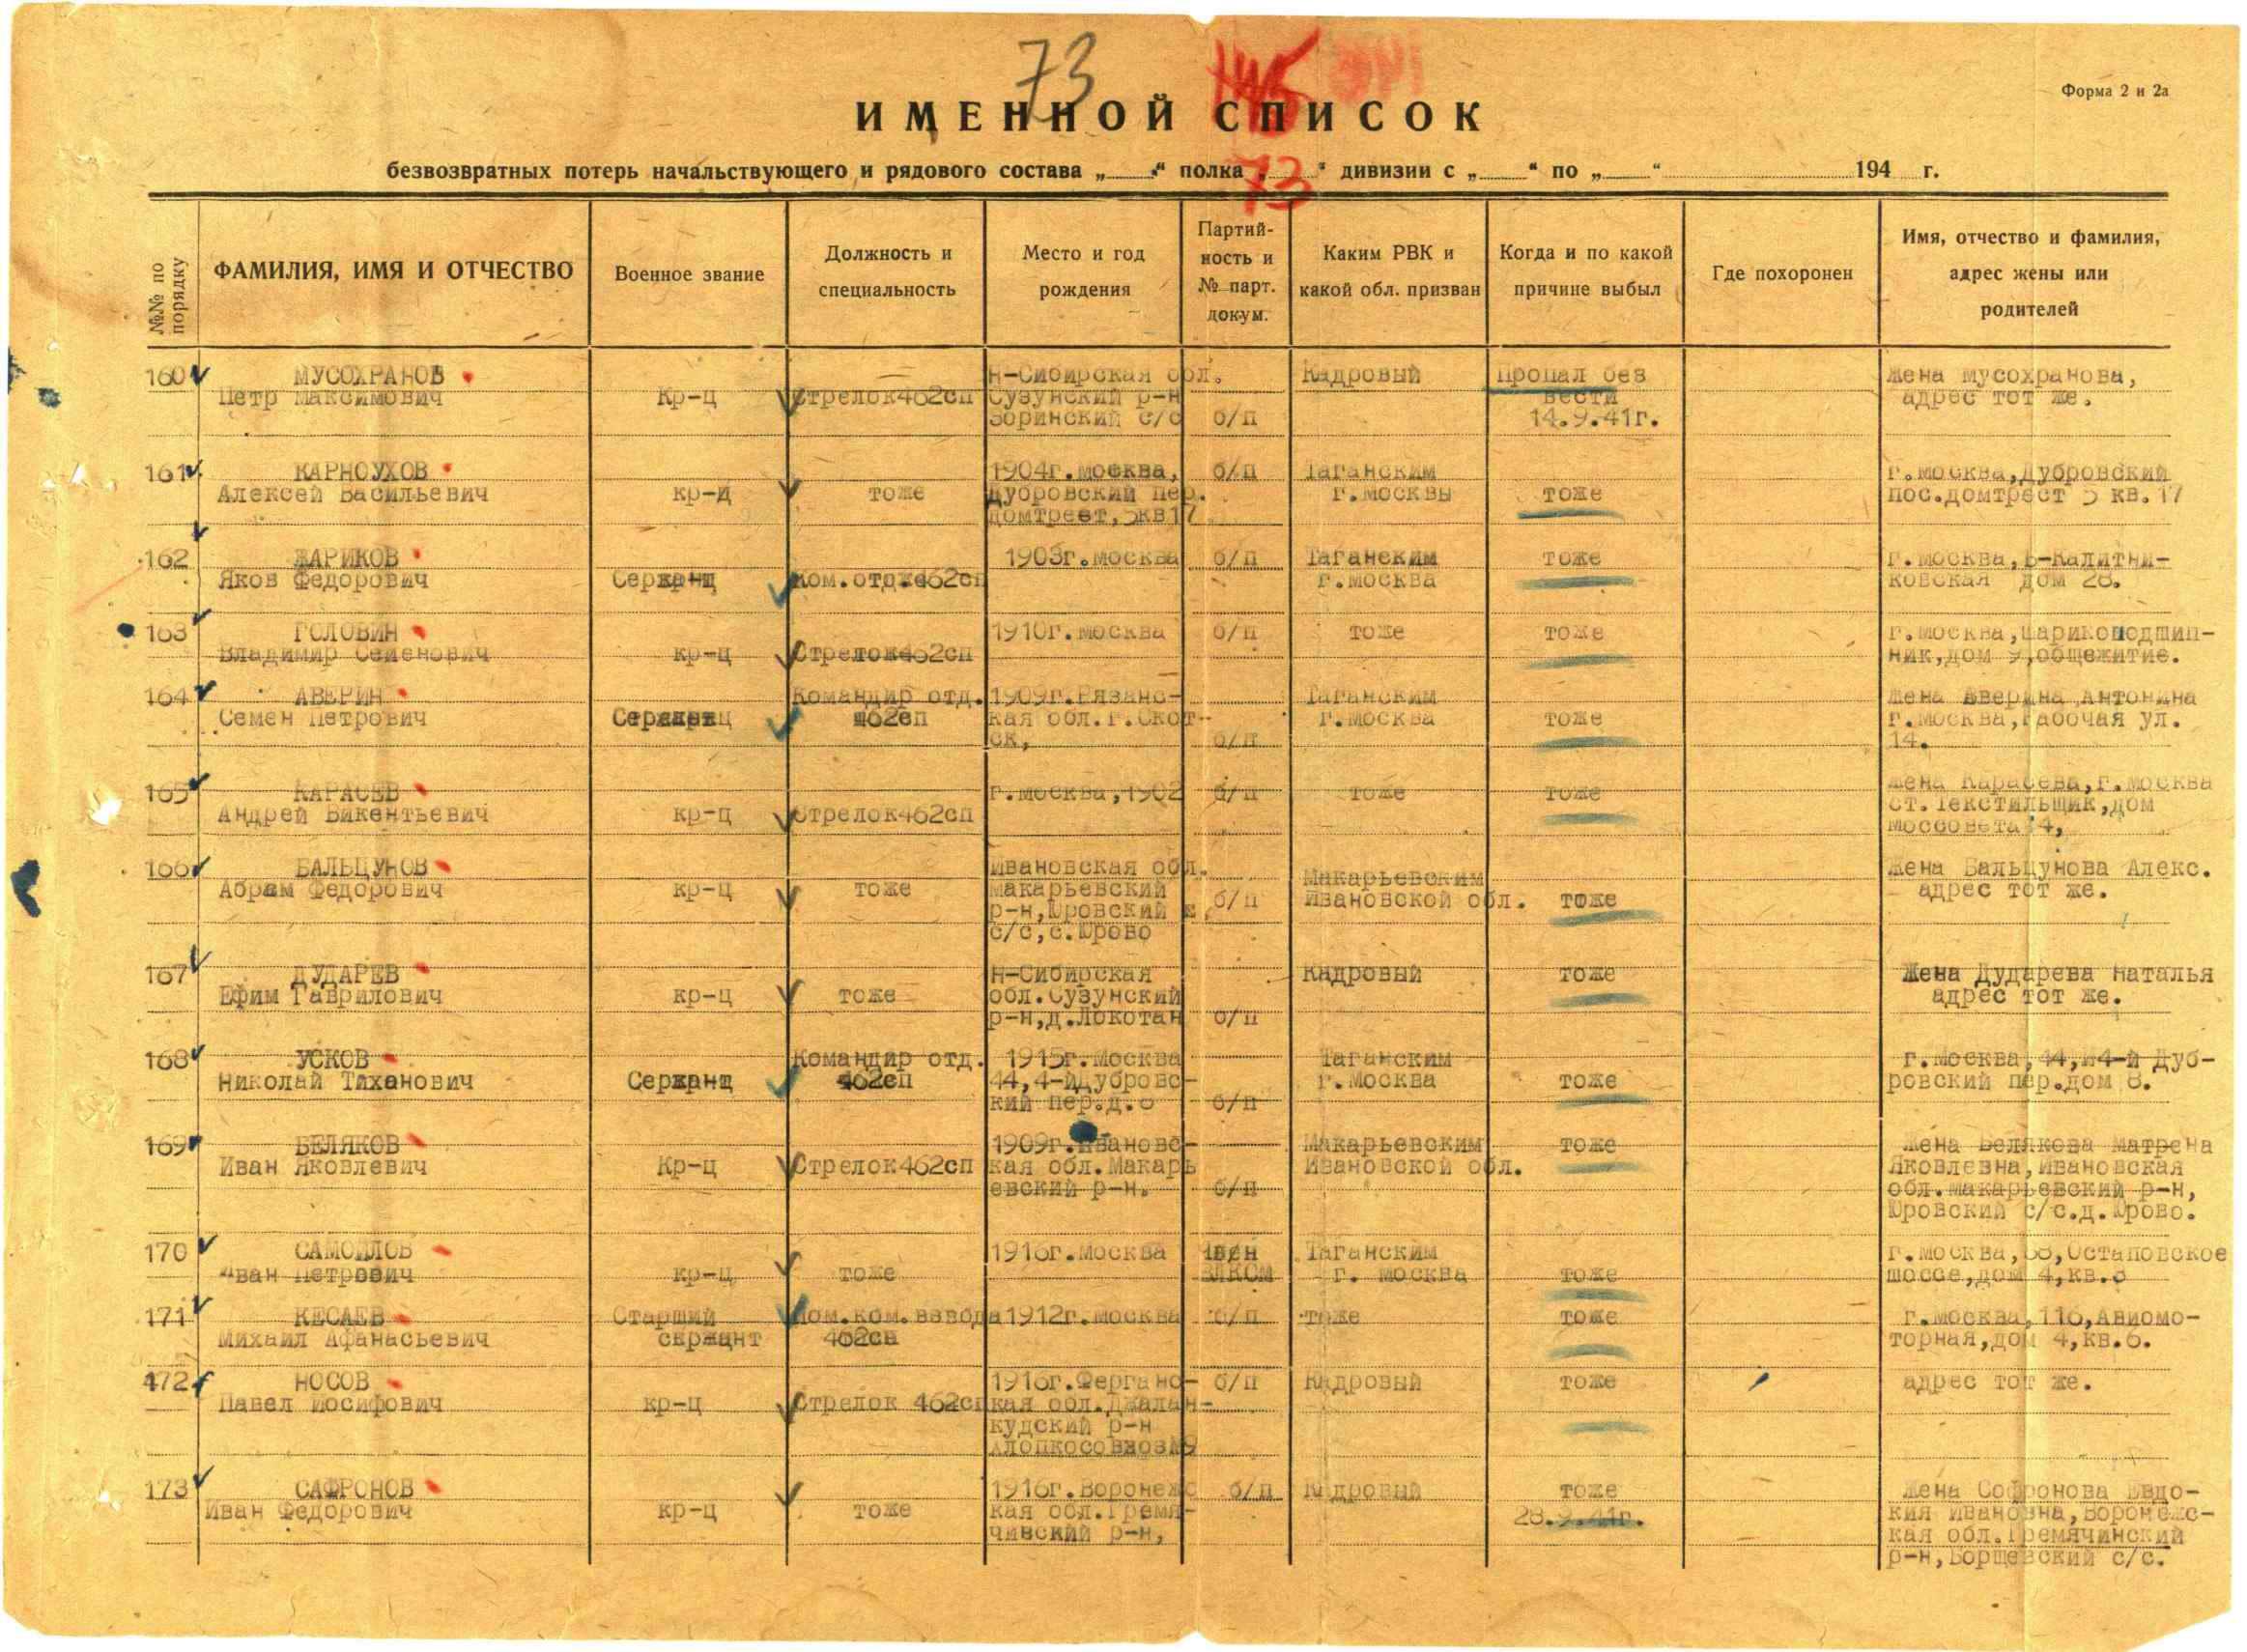 73
Форма 2 и 2а
ИМЕННОЙ СПИСОК
безвозвратных потерь начальствующего и рядового состава „ “ полка „ “ дивизии с „ “ по „ “ 194 г.
73
№№ по порядку
ФАМИЛИЯ, ИМЯ И ОТЧЕСТВО
Военное звание
Должность и
специальность
Место и год
рождения
Партий-
ность и
№ парт.
докум.
Каким РВК и
какой обл. призван
Когда и по какой
причине выбыл
Где похоронен
Имя, отчество и фамилия,
адрес жены или
родителей
160 МУСОХРАНОВ Н-Сибирская обл. Кадровый Пропал без Жена Мусохранова,
Петр Максимович Кр-ц Стрелок462сп Сузунский р-н вести адрес тот же.
Зоринский с/с б/п 14.9.41г.
161 КАРНОУХОВ 1904г.Москва, б/п Таганским г.Москва,Дубровский
Алексей Васильевич кр-ц тоже Дубровский пер. г.Москвы тоже пос.домтрест 5 кв.17
домтрест,5кв17
162 ЖАРИКОВ 1903г.Москва б/п Таганским тоже г.Москва,Б-Калитни-
Яков Федорович Сержант Ком.отд.462сп г.Москва ковская дом 28.
163 ГОЛОВИН 1910г.Москва б/п тоже тоже г.Москва,Шарикоподшип-
Владимир Семенович кр-ц Стрелок462сп ник,дом 9,общежитие.
164 АВЕРИН Командир отд. 1909г.Рязанс- Таганским Жена Аверина Антонина
Семен Петрович 462сп кая обл.г.Скот- г.Москва тоже г.Москва,Рабочая ул.
ск, б/п 14.
165 КАРАСЕВ г.Москва,1902 б/п тоже тоже Жена Карасева,г.Москва
Андрей Викентьевич кр-ц Стрелок462сп ст.Текстильщик,дом
Моссовета 4,
166 БАЛЬЦУНОВ Ивановская обл. Макарьевским Жена Бальцунова Алекс.
Абрам Федорович кр-ц тоже Макарьевский б/п Ивановской обл. тоже адрес тот же.
р-н,Юровский
с/с,с.Юрово
167 ДУДАРЕВ Н-Сибирская Кадровый тоже Жена Дударева Наталья
Ефим Гаврилович кр-ц тоже обл.Сузунский адрес тот же.
р-н,д.Локотан б/п
168 УСКОВ Командир отд. 1915г.Москва Таганским г.Москва,44,4-й Дуб-
Николай Тиханович Сержант 462сп 44,4-йДубровс- г.Москва тоже ровский пер.дом 8.
кий пер.д.8 б/п
169 БЕЛЯКОВ 1909г.Ивановс- Макарьевским тоже Жена Белякова Матрена
Иван Яковлевич Кр-ц Стрелок462сп кая обл.Макарь Ивановской обл. Яковлевна,Ивановская
евский р-н. б/п обл.Макарьевский р-н,
Юровский с/с.д.Юрово.
170 САМОЙЛОВ 1916г.Москва Член Таганским г.Москва,68,Остаповское
Иван Петрович кр-ц тоже ВЛКСМ г. Москва тоже шоссе,дом 4,кв.6
171 КЕСАЕВ Старший Пом.ком.взвода 1912г.Москва б/п тоже тоже г.Москва,116,Авиамо-
Михаил Афанасьевич сержант 462сп торная,дом 4,кв.6.
172 НОСОВ 1916г.Ферганс- б/п Кадровый тоже адрес тот же.
Павел Иосифович кр-ц Стрелок 462сп кая обл.Джалан-
кудский р-н
173 САФРОНОВ 1916г.Воронежс б/п Кадровый тоже Жена Софронова Евдо-
Иван Федорович кр-ц тоже кая обл.Гремя- 28.9.41г. кия Ивановна,Воронежс-
чинский р-н, кая обл.Гремячинский
р-н,Борщевский с/с.